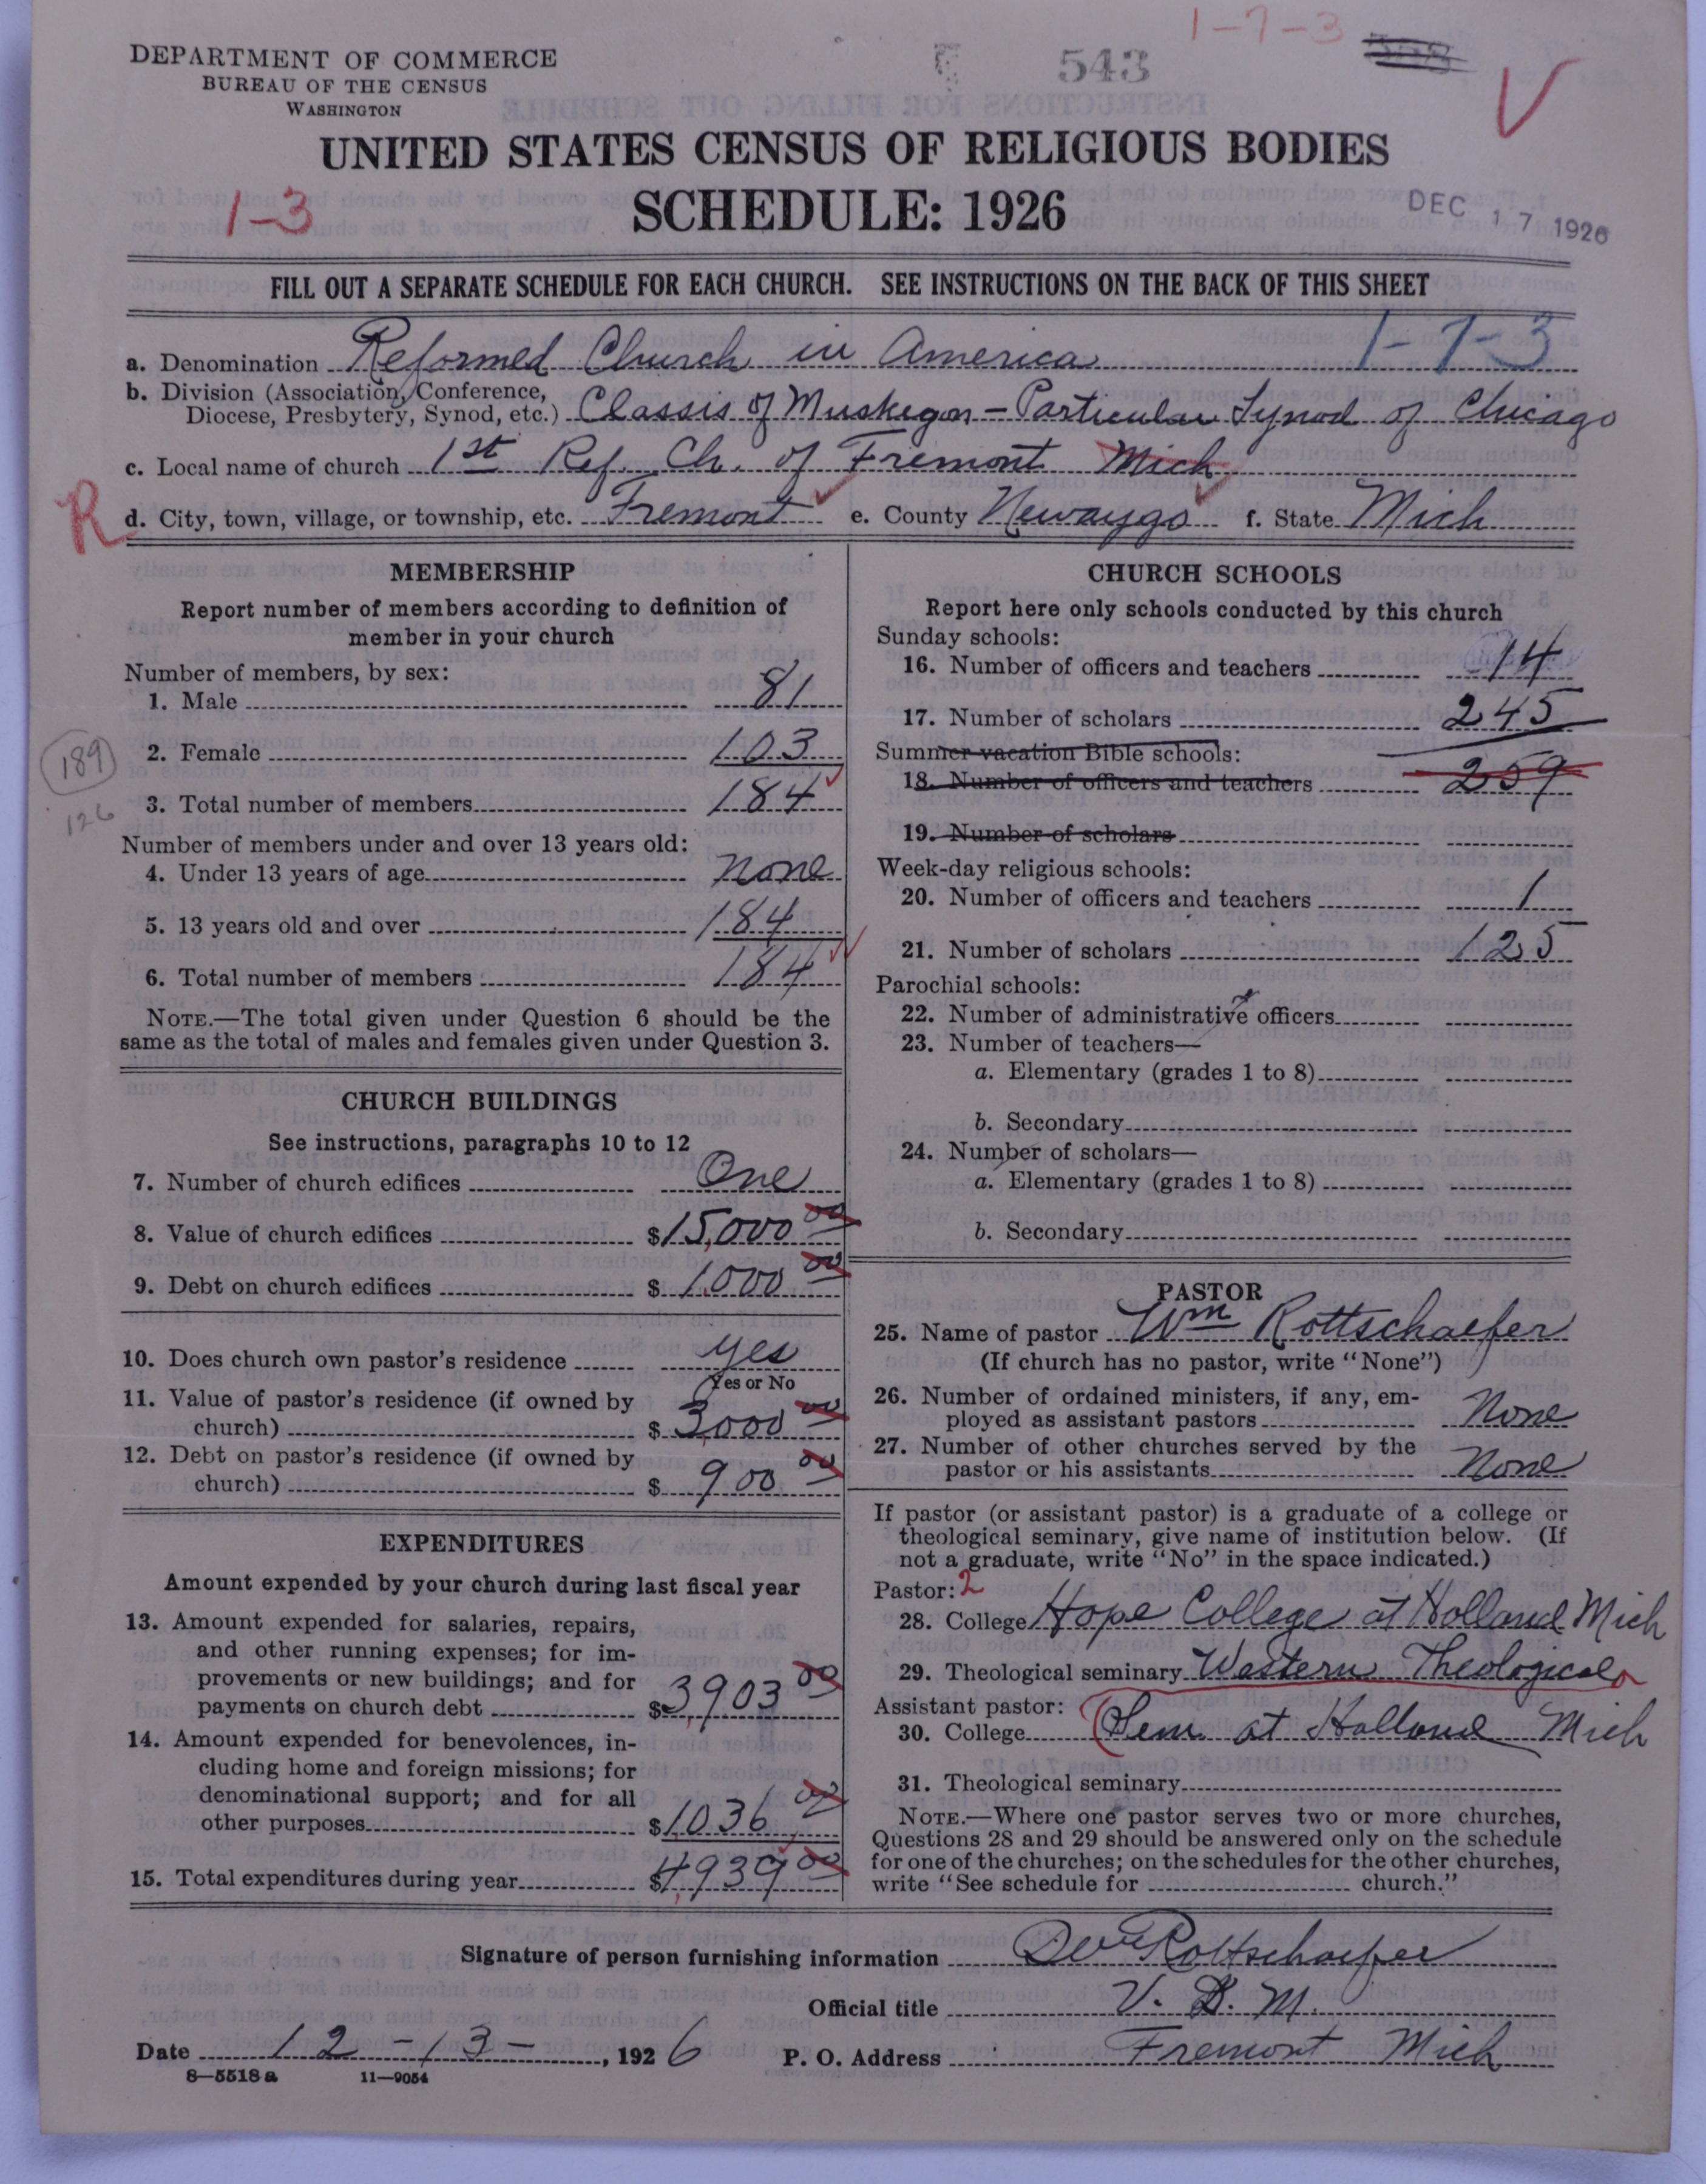 DEPARTMENT OF COMMERCE
BUREAU OF THE CENSUS
WASHINGTON
543
1-7-3
V
UNITED STATES CENSUS OF RELIGIOUS BODIES
SCHEDULE: 1926
1-3
DEC 17 1926
FILL OUT A SEPARATE SCHEDULE FOR EACH CHURCH. SEE INSTRUCTIONS ON THE BACK OF THIS SHEET
a. Denomination Reformed Church in America 1-7-3
b. Division (Association, Conference,
Diocese, Presbytery, Synod, etc.) Classis of Muskegon - Particular Synod of Chicago
c. Local name of church 1st Ref. Ch. of Fremont Mich
R d. City, town, village, or township, etc. Fremont e. County Newaygo f. State Mich
MEMBERSHIP
Report number of members according to definition of
member in your church
Number of members, by sex:
1. Male 81
2. Female 103
189
3. Total number of members 184
126
Number of members under and over 13 years old:
4. Under 13 years of age none
5. 13 years old and over 184
6. Total number of members 184
NOTE.—The total given under Question 6 should be the
same as the total of males and females given under Question 3.
CHURCH BUILDINGS
See instructions, paragraphs 10 to 12
7. Number of church edifices One
8. Value of church edifices $15,000 00
9. Debt on church edifices $ 1,000 00
10. Does church own pastor's residence yes
Yes or No
11. Value of pastor's residence (if owned by
church) $ 3,000 00
12. Debt on pastor's residence (if owned by
church) $ 900 00
EXPENDITURES
Amount expended by your church during last fiscal year
13. Amount expended for salaries, repairs,
and other running expenses; for im-
provements or new buildings; and for
payments on church debt $3,903 00
14. Amount expended for benevolences, in-
cluding home and foreign missions; for
denominational support; and for all
other purposes $1,036 00
15. Total expenditures during year $4,939 00
CHURCH SCHOOLS
Report here only schools conducted by this church
Sunday schools:
16. Number of officers and teachers 14
17. Number of scholars 245
Summer vacation Bible schools:
18. Number of officers and teachers 259
19. Number of scholars
Week-day religious schools:
20. Number of officers and teachers 1
21. Number of scholars 125
Parochial schools:
22. Number of administrative officers
23. Number of teachers—
a. Elementary (grades 1 to 8)
b. Secondary
24. Number of scholars—
a. Elementary (grades 1 to 8)
b. Secondary
PASTOR
25. Name of pastor Wm Rottschaefer
(If church has no pastor, write "None")
26. Number of ordained ministers, if any, em-
ployed as assistant pastors None
27. Number of other churches served by the
pastor or his assistants None
If pastor (or assistant pastor) is a graduate of a college or
theological seminary, give name of institution below. (If
not a graduate, write "No" in the space indicated.)
Pastor: 2
28. College Hope College at Holland Mich
29. Theological seminary Western Theological
Assistant pastor:
30. College Sem at Holland Mich
31. Theological seminary
NOTE.—Where one pastor serves two or more churches,
Questions 28 and 29 should be answered only on the schedule
for one of the churches; on the schedules for the other churches,
write "See schedule for church."
Signature of person furnishing information Rottschaefer
Official title V. D. M.
Date 12-13-, 1926 P. O. Address Fremont Mich
8—5518 a 11—9054